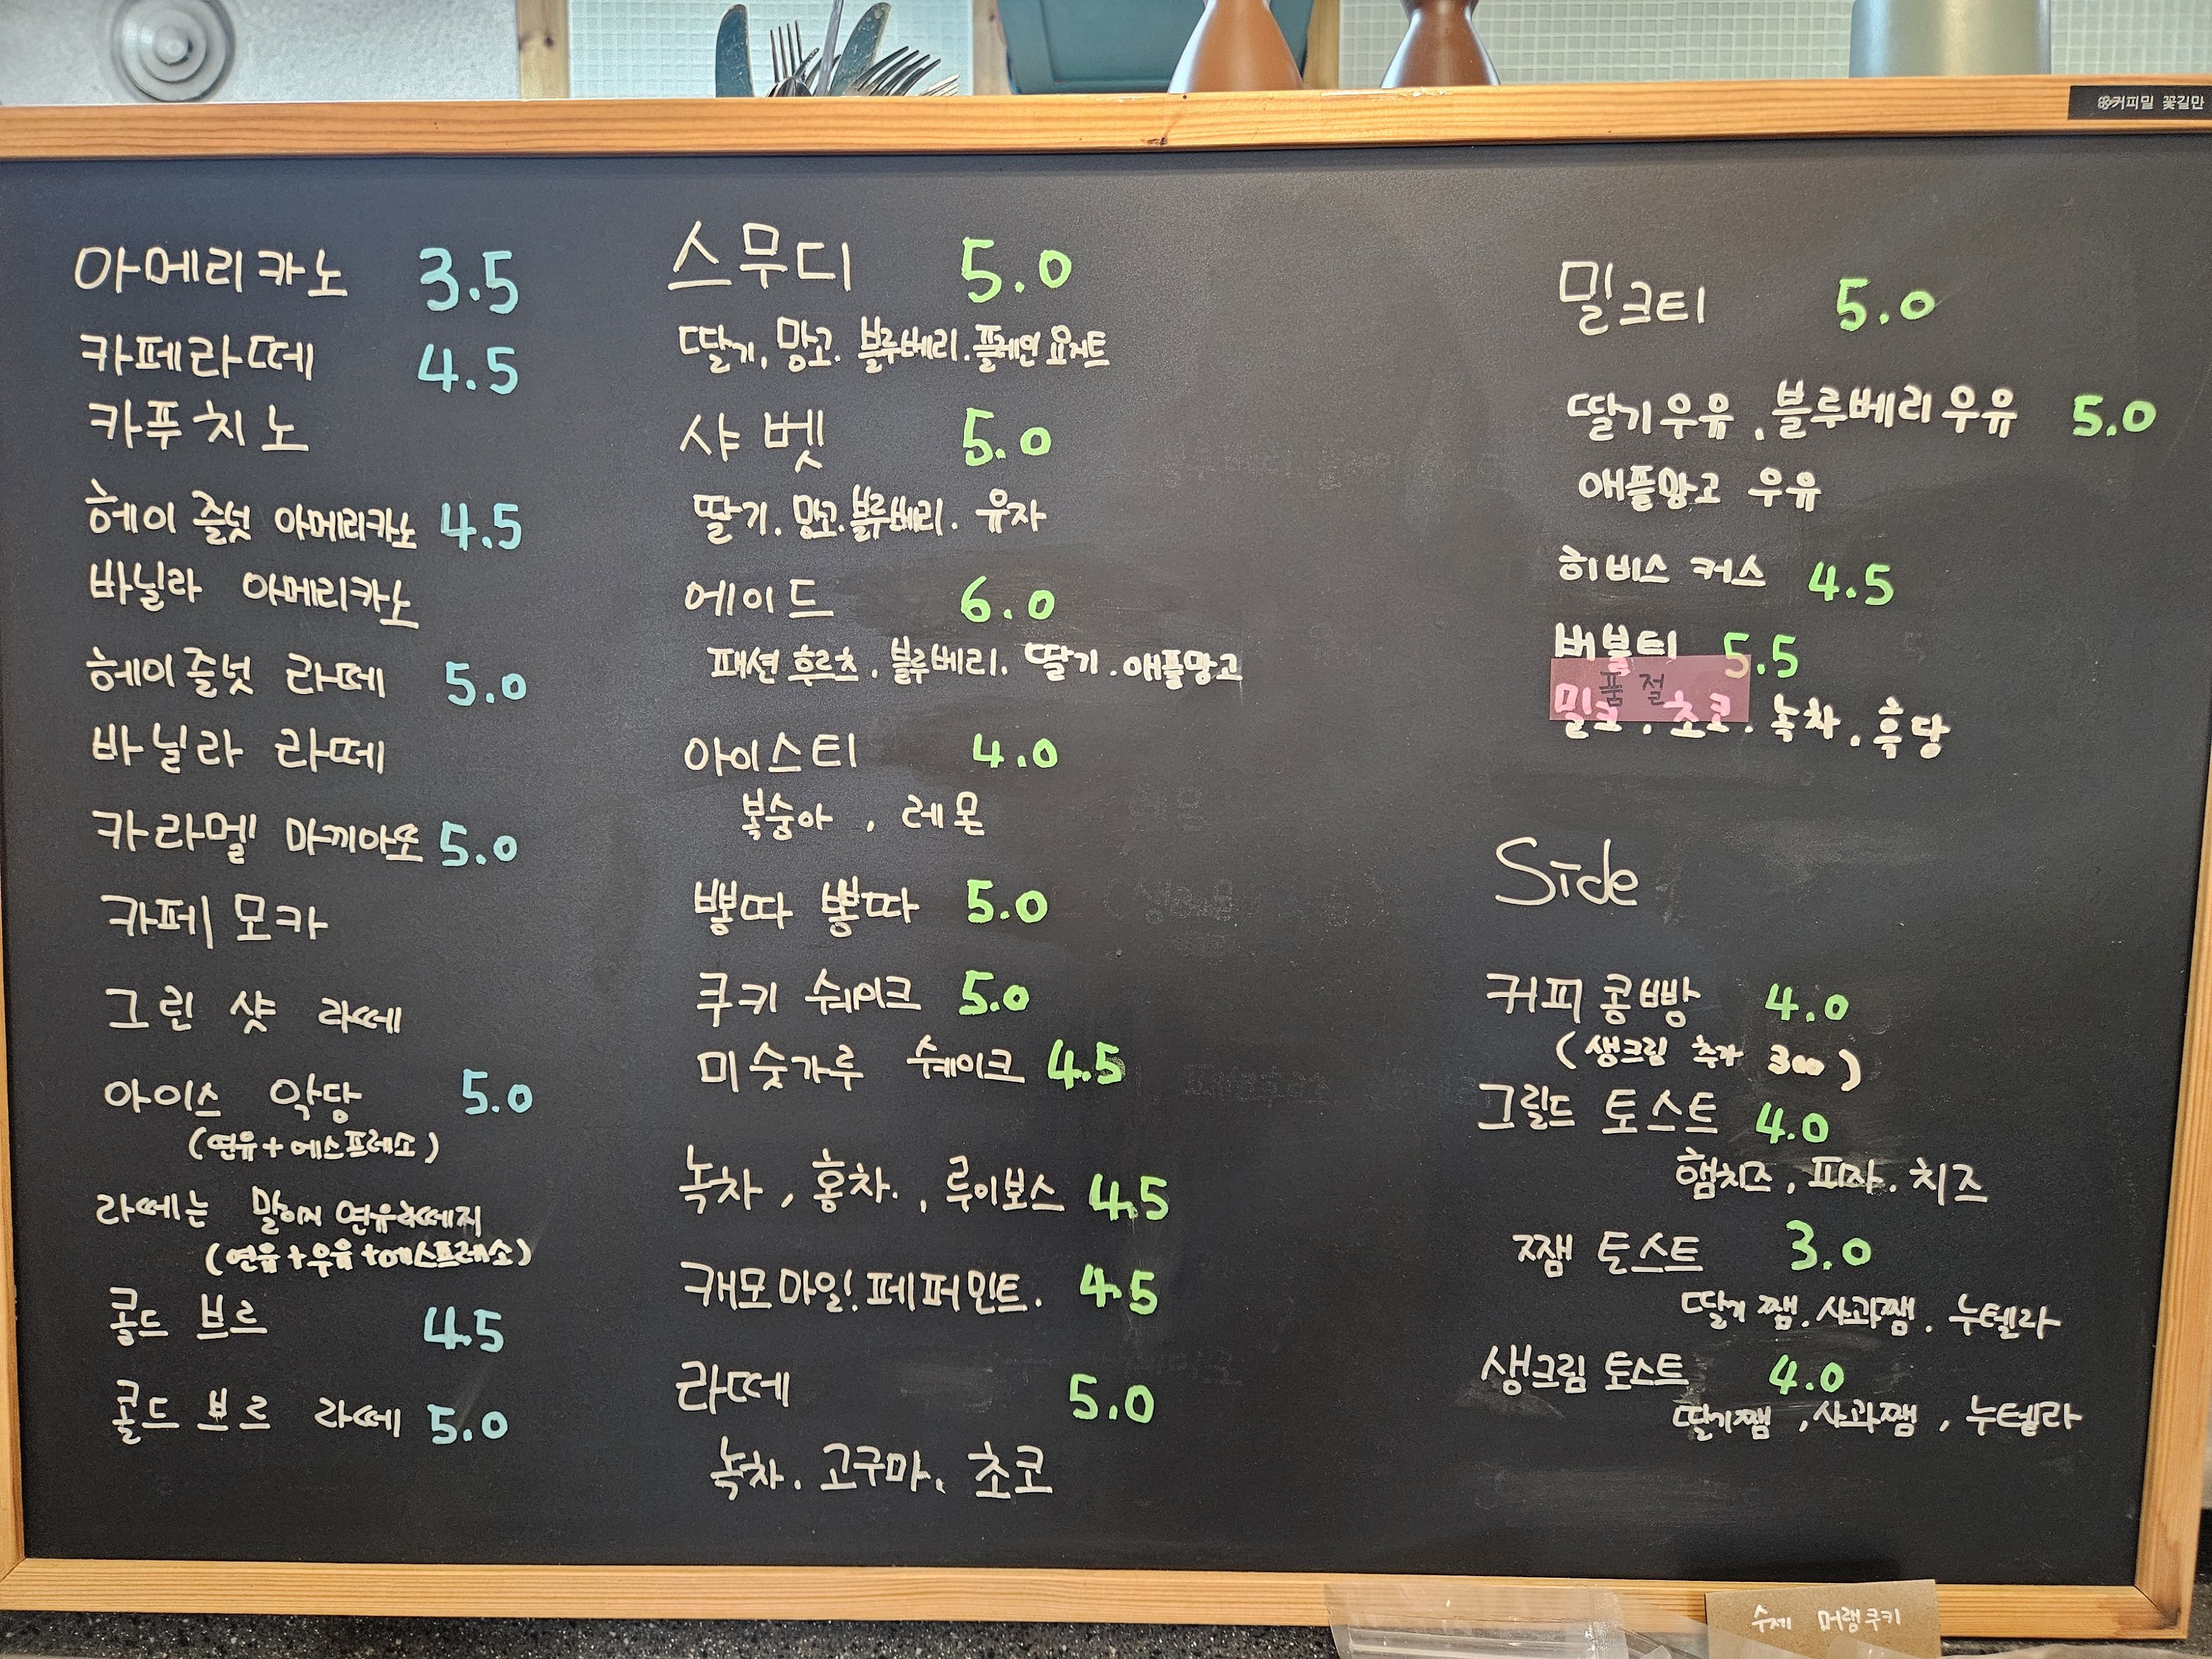 커피밀 꽃길만
아메리카노 3.5
카페라떼 4.5
카푸치노
헤이즐넛 아메리카노 4.5
바닐라 아메리카노
헤이즐넛 라떼 5.0
바닐라 라떼
카라멜 마끼아또 5.0
카페모카
그린 샷 라떼
아이스 악당 5.0
(연유+에스프레소)
라떼는 말이지 연유라떼지
(연유+우유+에스프레소)
콜드 브르 4.5
콜드 브르 라떼 5.0
스무디 5.0
딸기. 망고. 블루베리. 플레인 요거트
샤벳 5.0
딸기. 망고. 블루베리. 유자
에이드 6.0
패션후르츠. 블루베리. 딸기. 애플망고
아이스티 4.0
복숭아, 레몬
뽕따 뽕따 5.0
쿠키 쉐이크 5.0
미숫가루 쉐이크 4.5
녹차, 홍차., 루이보스 4.5
캐모마일. 페퍼민트. 4.5
라떼 5.0
녹차. 고구마. 초코
밀크티 5.0
딸기우유. 블루베리우유 5.0
애플망고 우유
히비스커스 4.5
버블티 5.5
품절
밀크. 초코. 녹차. 흑당
Side
커피콩빵 4.0
(생크림 추가 300)
그릴드 토스트 4.0
햄치즈, 피자. 치즈
쨈 토스트 3.0
딸기쨈. 사과쨈. 누텔라
생크림 토스트 4.0
딸기쨈, 사과쨈, 누텔라
수제 머랭쿠키